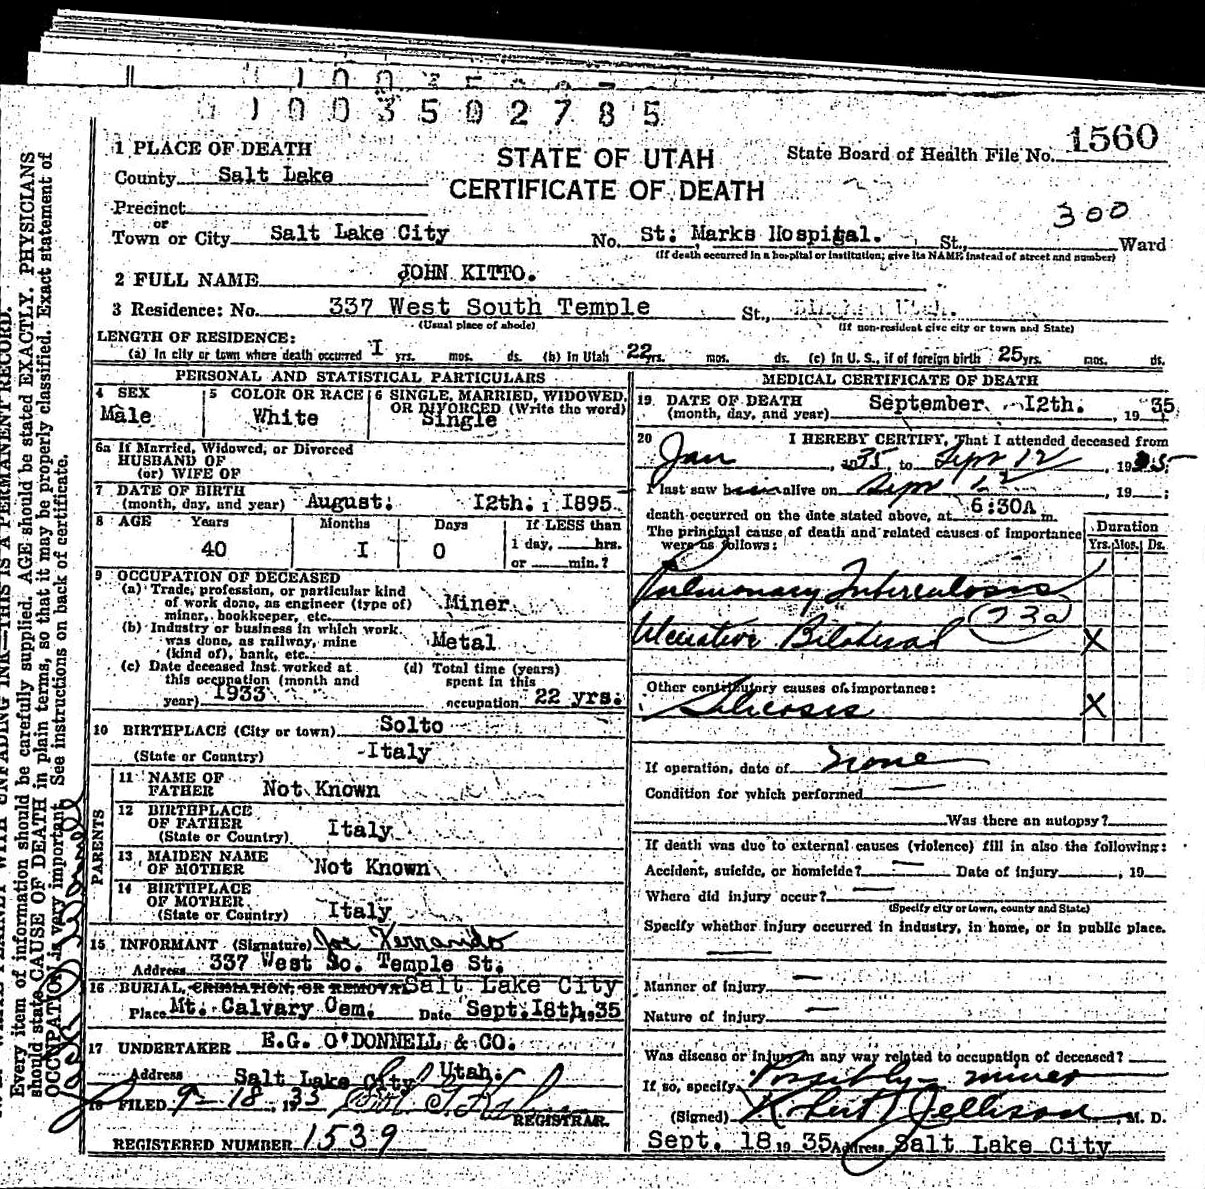 01003502785
1560
1 PLACE OF DEATH
STATE OF UTAH
State Board of Health File No.
County Salt Lake
CERTIFICATE OF DEATH
Precinct
300
or
Town or City Salt Lake City No. St. Marks Hospigal. St., Ward
(If death occurred in a hospital or institution, give its NAME instead of street and number)
2 FULL NAME JOHN KITTO.
3 Residence: No. 337 West South Temple St., Utah.
(Usual place of abode) (If non-resident give city or town and State)
LENGTH OF RESIDENCE:
(a) In city or town where death occurred I yrs. mos. ds. (b) In Utah 22 yrs. mos. ds. (c) In U. S., if of foreign birth 25 yrs. mos. ds.
PERSONAL AND STATISTICAL PARTICULARS
4 SEX Male
5 COLOR OR RACE White
6 SINGLE, MARRIED, WIDOWED, OR DIVORCED (Write the word) Single
6a If Married, Widowed, or Divorced
HUSBAND OF
(or) WIFE OF
7 DATE OF BIRTH
(month, day, and year) August. I2th. 1895
8 AGE Years Months Days If LESS than
40 I 0 1 day, hrs.
or min.?
9 OCCUPATION OF DECEASED
(a) Trade, profession, or particular kind
of work done, as engineer (type of)
miner, bookkeeper, etc. Miner
(b) Industry or business in which work
was done, as railway, mine
(kind of), bank, etc. Metal
(c) Date deceased last worked at
this occupation (month and
year) 1933
(d) Total time (years)
spent in this
occupation 22 yrs.
10 BIRTHPLACE (City or town) Solto
(State or Country) -Italy
PARENTS
11 NAME OF
FATHER Not Known
12 BIRTHPLACE
OF FATHER
(State or Country) Italy
13 MAIDEN NAME
OF MOTHER Not Known
14 BIRTHPLACE
OF MOTHER
(State or Country) Italy
15 INFORMANT (Signature) Joe Ferrando
Address 337 West So. Temple St.
16 BURIAL, CREMATION, OR REMOVAL Salt Lake City
Place Mt. Calvary Cem. Date Sept. I8th, 1935
17 UNDERTAKER E.G. O'DONNELL & CO.
Address Salt Lake City Utah.
18 FILED 9-18, 1935
REGISTRAR.
REGISTERED NUMBER 1539
MEDICAL CERTIFICATE OF DEATH
19 DATE OF DEATH
(month, day, and year) September I2th. 1935
20 I HEREBY CERTIFY, That I attended deceased from
Jan, 1935 to Sept 12, 1935
I last saw him alive on Sept 12, 19 ;
death occurred on the date stated above, at 6:30A m.
The principal cause of death and related causes of importance
were as follows:
Duration
Yrs. Mos. Ds.
Pulmonary Tuberculosis
(23a)
Ulcerative Bilateral X
Other contributory causes of importance:
Silicosis X
If operation, date of none
Condition for which performed
Was there an autopsy?
If death was due to external causes (violence) fill in also the following:
Accident, suicide, or homicide? Date of injury , 19
Where did injury occur?
(Specify city or town, county and State)
Specify whether injury occurred in industry, in home, or in public place.
Manner of injury
Nature of injury
Was disease or injury in any way related to occupation of deceased?
If so, specify Possibly miner
(Signed) Robert Jellison, M. D.
Sept. 18 1935 Address Salt Lake City
Every item of information should be carefully supplied. AGE should be stated EXACTLY. PHYSICIANS
should state CAUSE OF DEATH in plain terms, so that it may be properly classified. Exact statement of
OCCUPATION is very important. See instructions on back of certificate.